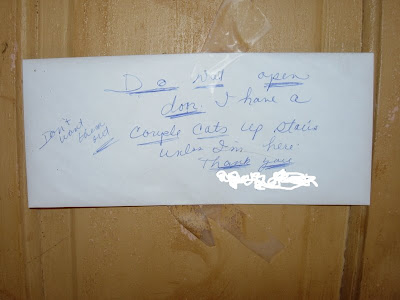 Do not open
door. I have a
couple cats up stairs
unless I'm here.
Thank you
Don't
want them
out